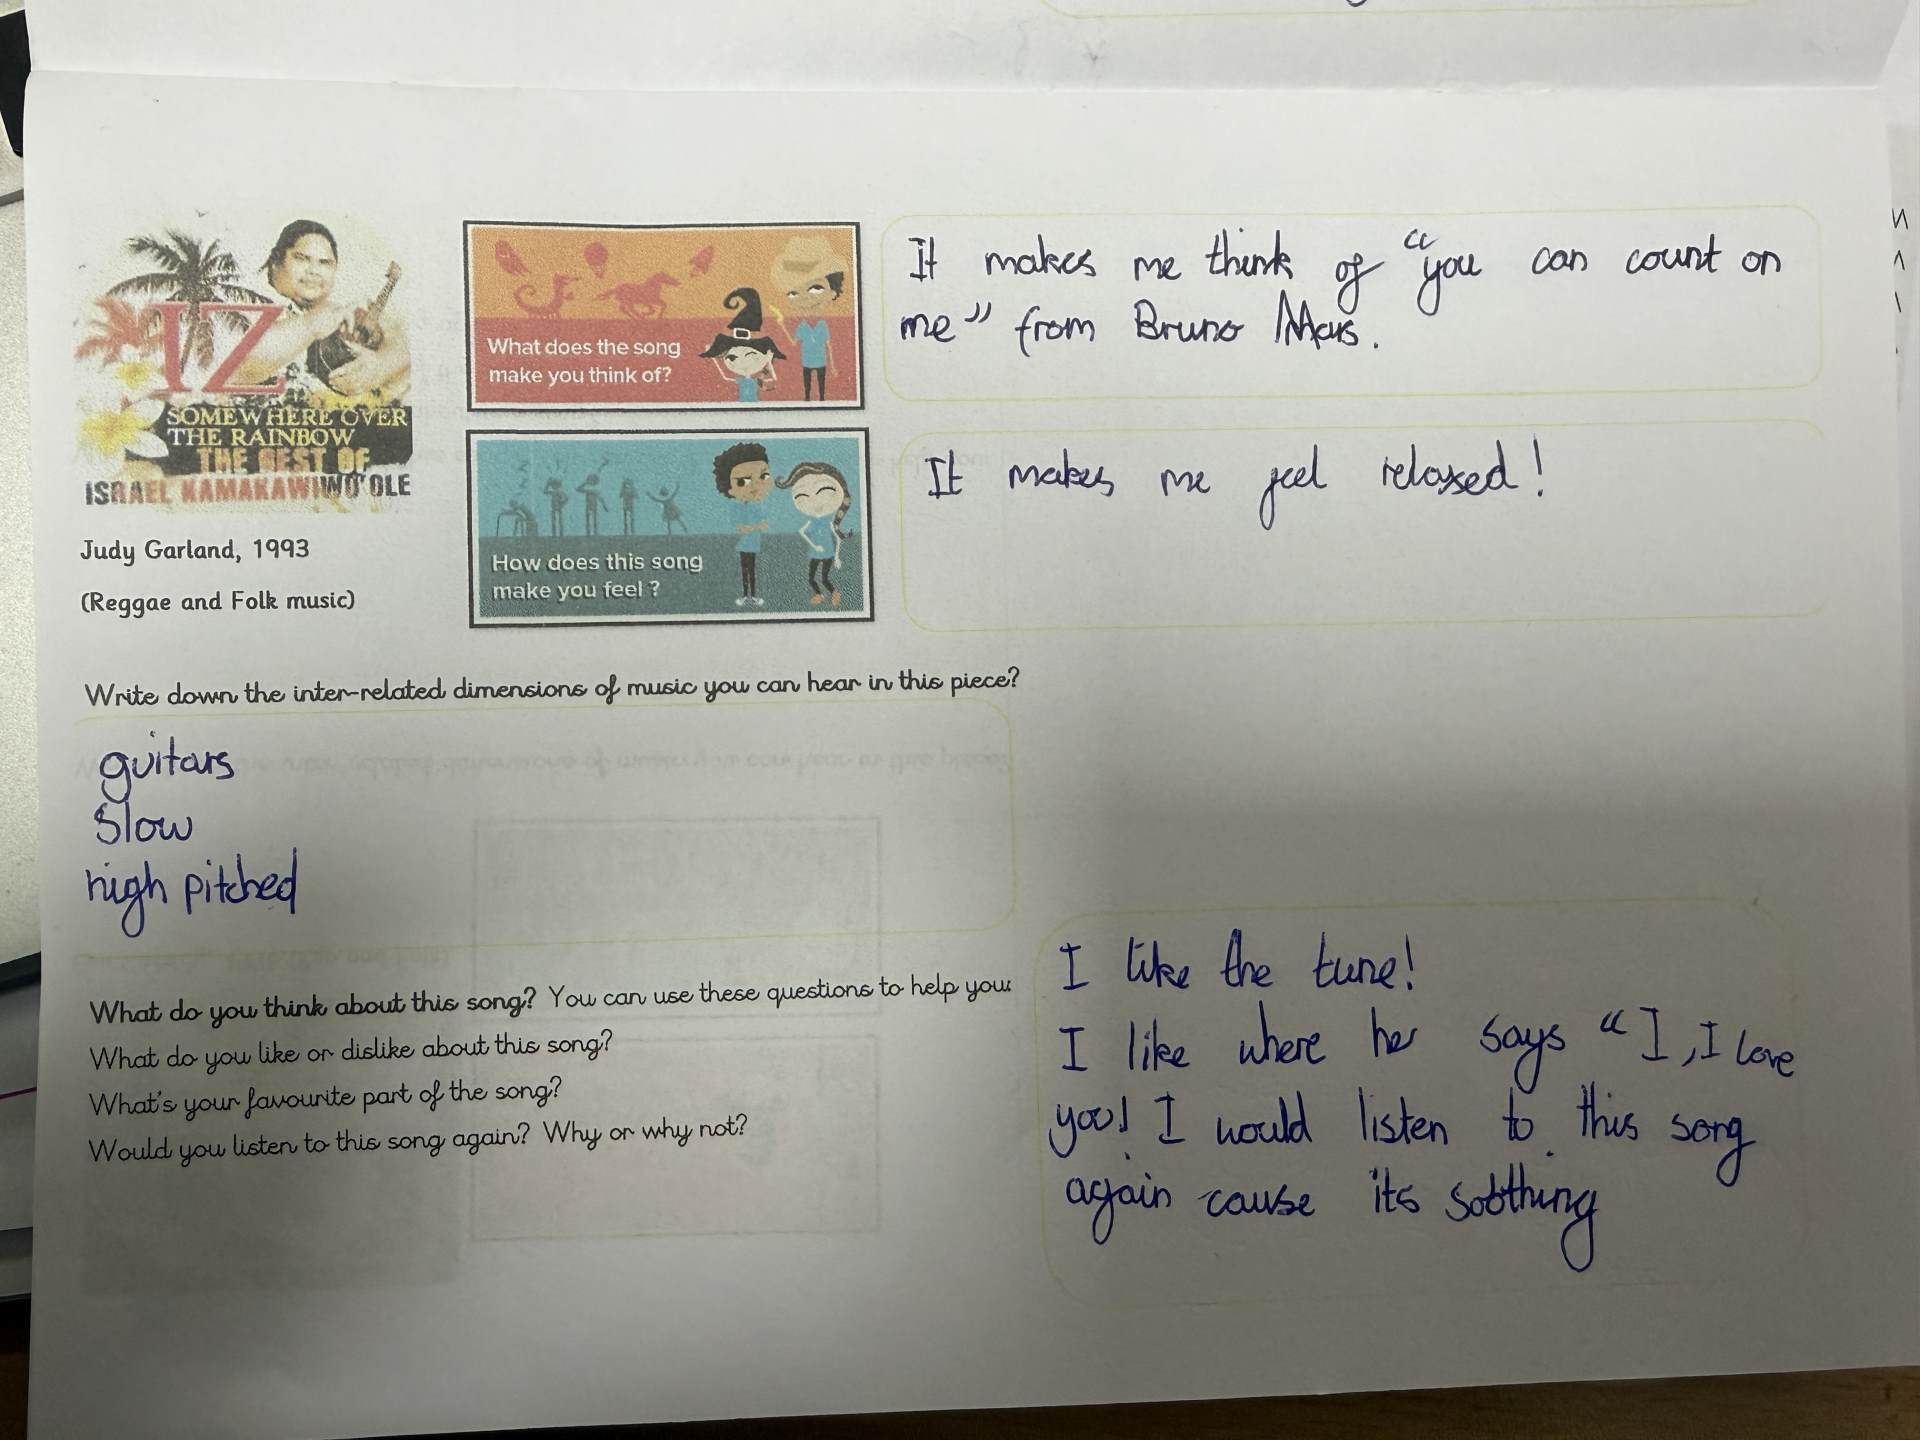 IZ
SOMEWHERE OVER
THE RAINBOW
THE BEST OF
ISRAEL KAMAKAWIWO'OLE
Judy Garland, 1993
(Reggae and Folk music)
What does the song
make you think of?
It makes me think of "you can count on
me" from Bruno Mars.
How does this song
make you feel ?
It makes me feel relaxed!
Write down the inter-related dimensions of music you can hear in this piece?
guitars
Slow
high pitched
What do you think about this song? You can use these questions to help you:
What do you like or dislike about this song?
What's your favourite part of the song?
Would you listen to this song again? Why or why not?
I like the tune!
I like where he says "I, I love
you! I would listen to this song
again cause its soothing